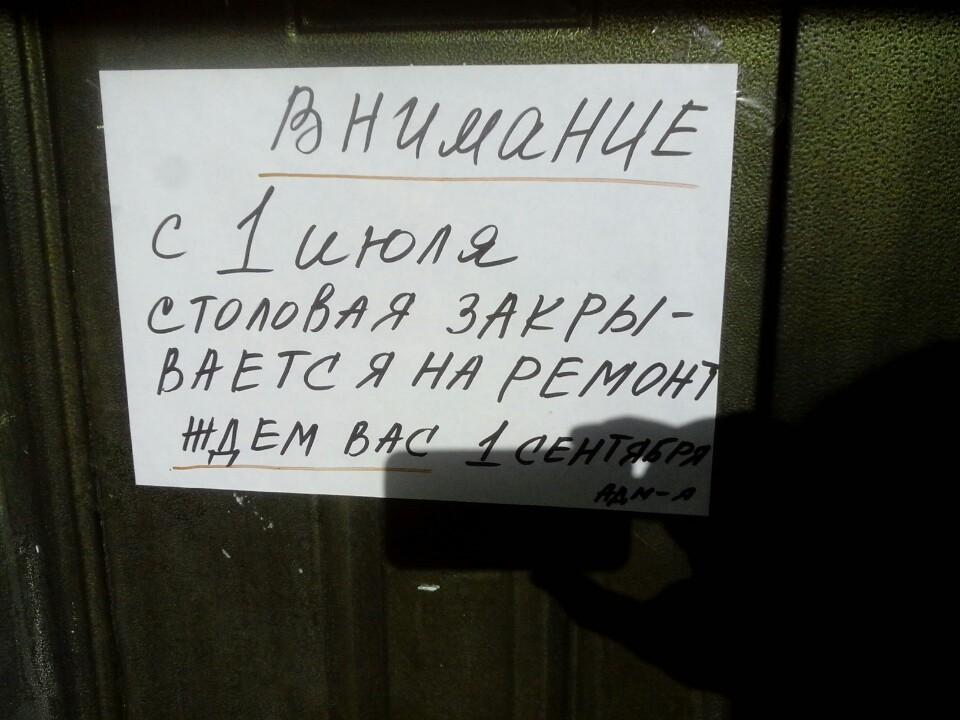 ВНИМАНИЕ
с 1 июля
столовая закры-
вается на ремонт
ждем вас 1 сентября
адм-я